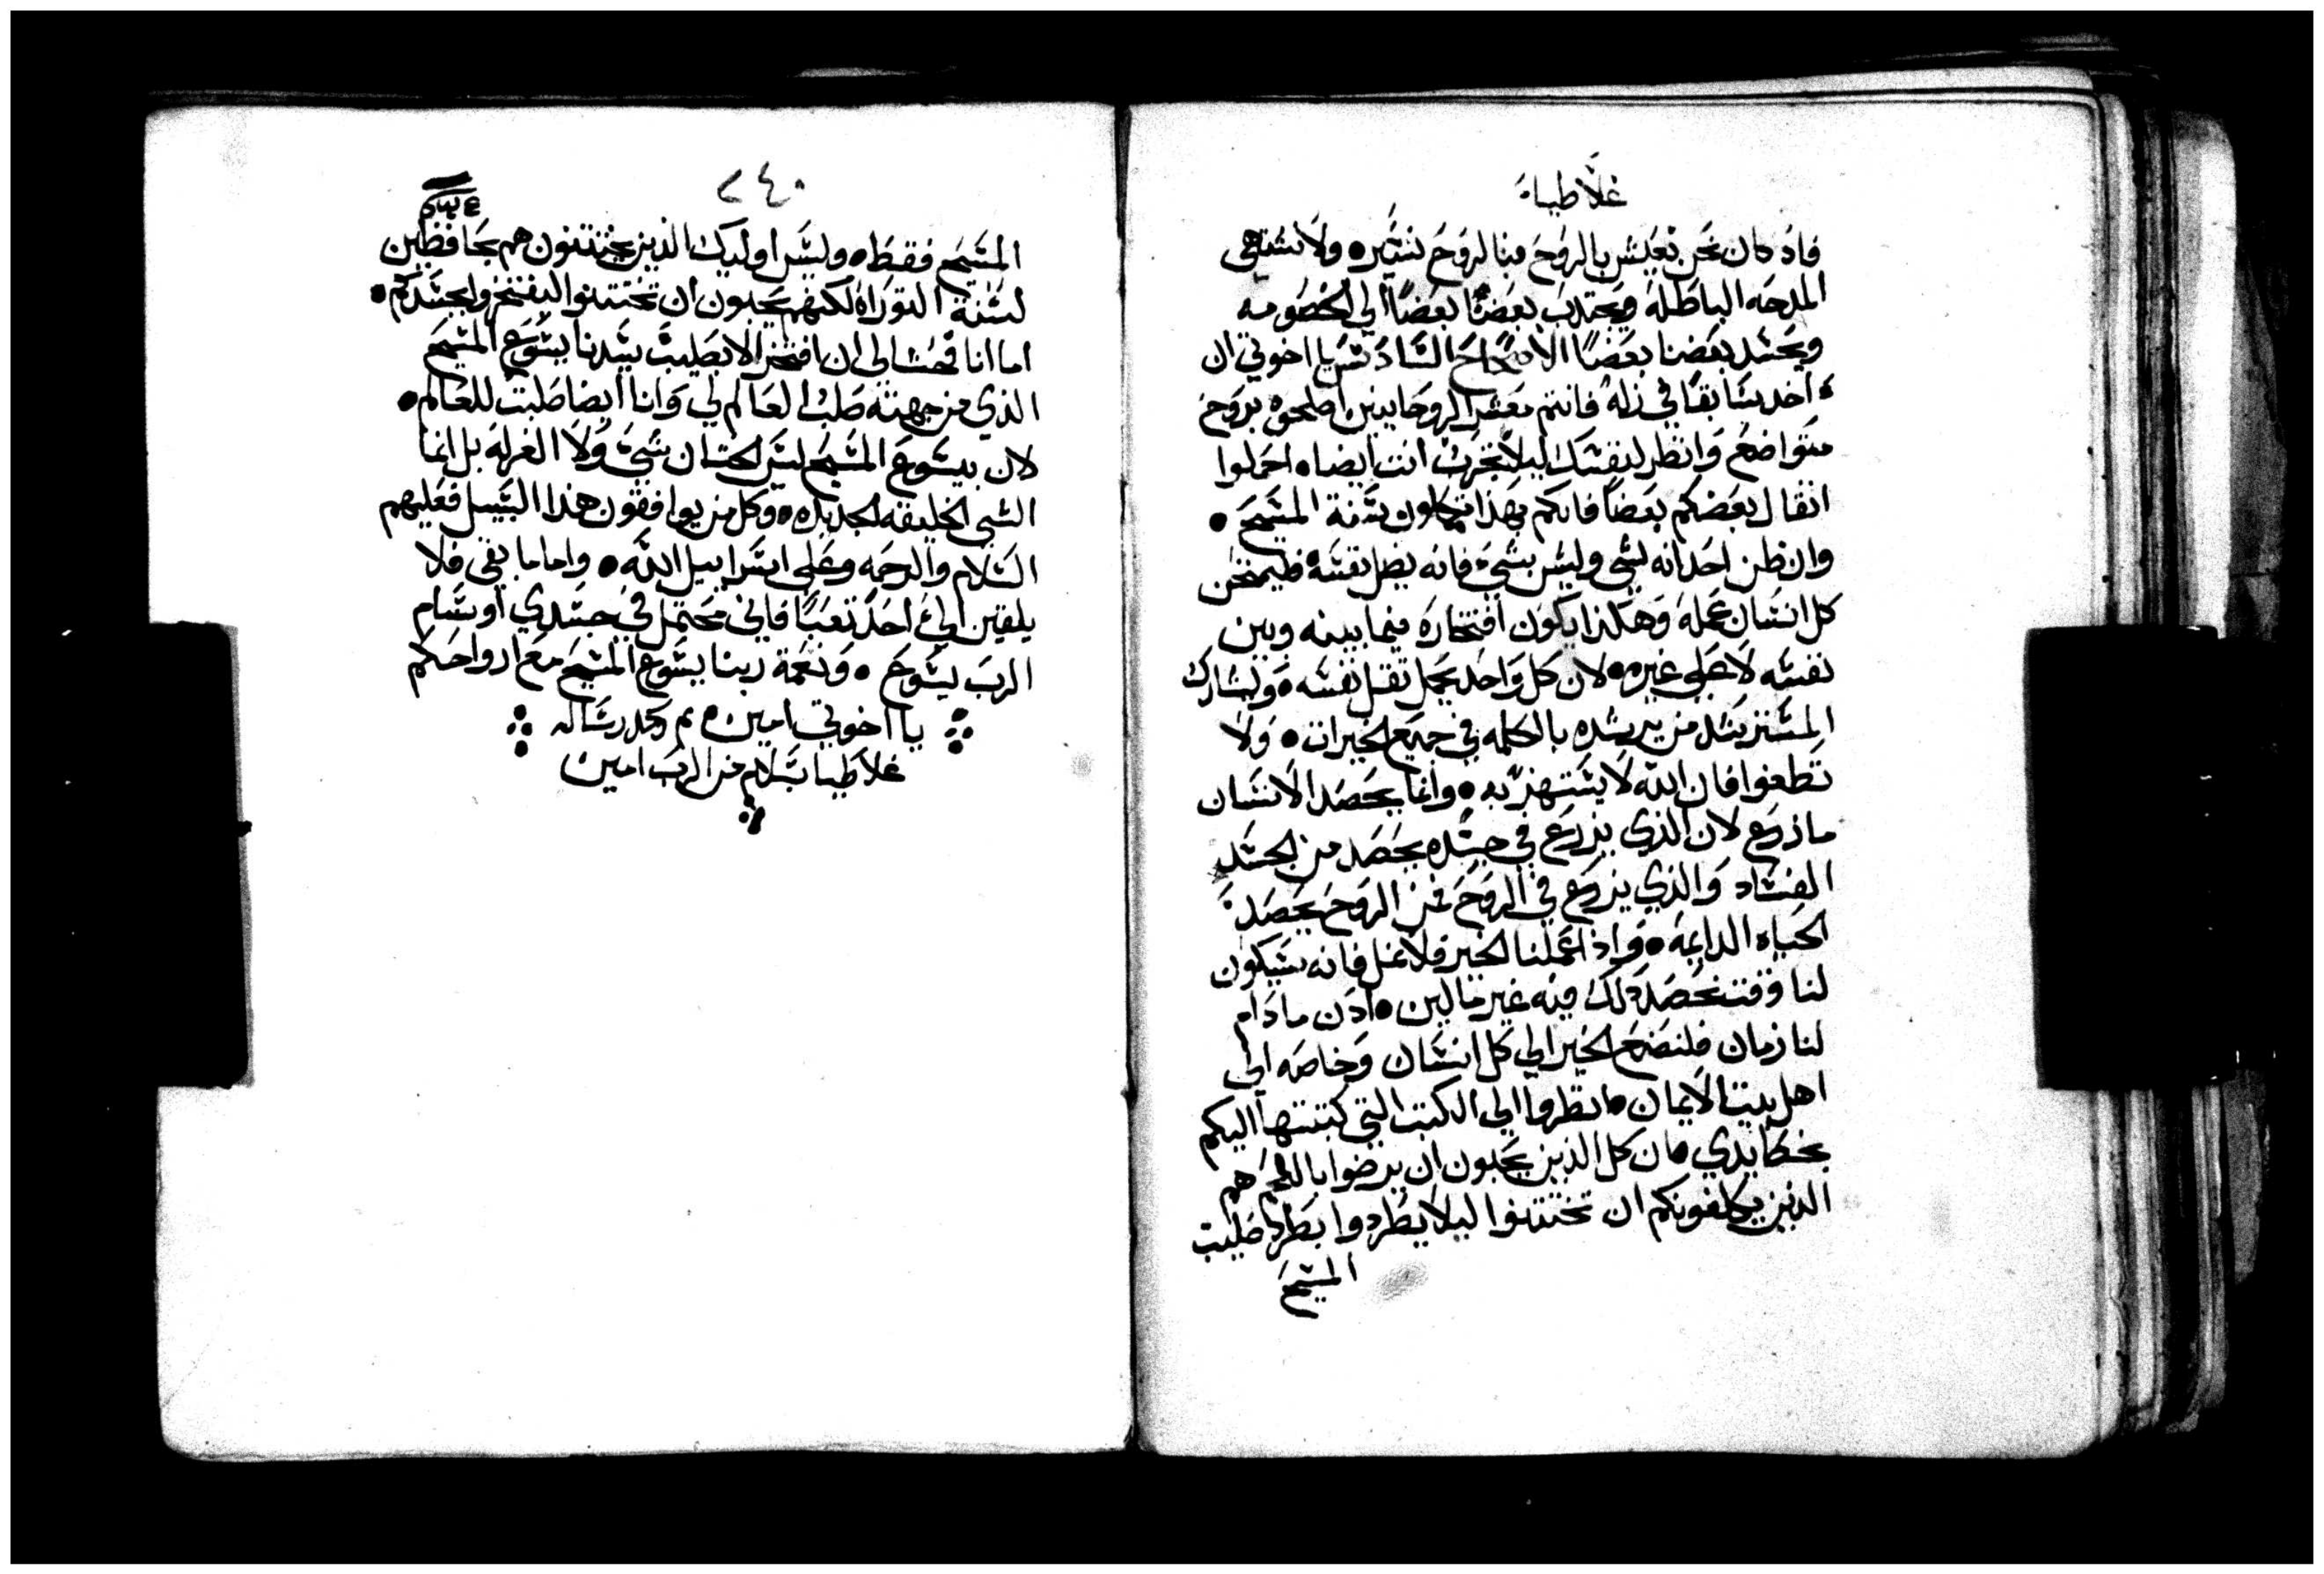 غلاطيا
فاد كان نحن نعيش بالروح فبالروح نسير ولا نشتهي
المدحه الباطله ويجتدب بعضنا بعضاً الي الخصومه
ويحسد بعضنا بعضاً الاصحاح السادس يا اخوتي ان
اخد سابقا في زله فانتم معشر الروحانيين اصلحوه بروح
متواضع وانظر لنفسك ليلا تجرب انت ايضا احملوا
اتقال بعضكم بعضاً فانكم بهدا تكملون سنة المسيح
وان ظن احد انه لشي وليس بشي فانه يضل نفسه فليمتحن
كل انسان عمله وهكدا يكون افتخاره فيما بينه وبين
نفسه لا علي غيره لان كل واحد يحمل تقل نفسه وليشارك
المسترشد من يرشده بالكلمه في جميع الخيرات ولا
تطغوا فان الله لا يستهزبه وانما يحصد الانسان
ما زرع لان الذي يزرع في جسده يحصد من الجسد
الفساد والذي يزرع في الروح فمن الروح يحصد
الحياه الدايمه واذا عملنا الخير فلا نمل فانه سيكون
لنا وقت نحصد دلك فيه غير مالين ادن ما دام
لنا زمان فلنصنع الخير الي كل انسان وخاصه الي
اهل بيت الايمان انظروا الي الكتب التي كتبتها اليكم
بخط يدي فان كل الذين يحبون ان يرضوا باللحم هم
الذين يكلفونكم ان تختتنوا ليلا يطردوا بطرد صليب
المسيح
٢٤٠
المسيح فقط وليس اوليك الذين يختتنون هم بحافظين
لسنة التوراه لكنهم يحبون ان تختتنوا ليفتخروا بجسدكم
اما انا فحاشا لي ان افتخر الا بصليب سيدنا يسوع المسيح
الذي من جهته صلب العالم لي وانا ايضا صلبت للعالم
لان بيسوع المسيح ليس الختان شي ولا الغرله بل انما
الشي الخليقه الجديده وكل من يوافقون هذا السبيل فعليهم
السلام والرحمه وعلي اسراييل الله واما ما بقي فلا
يلقين الي احد تعباً فاني محتمل في جسدي اوسام
الرب يسوع ونعمة ربنا يسوع المسيح مع ارواحكم
يا اخوتي امين تم وكمل رساله
غلاطيا بسلام من الرب امين